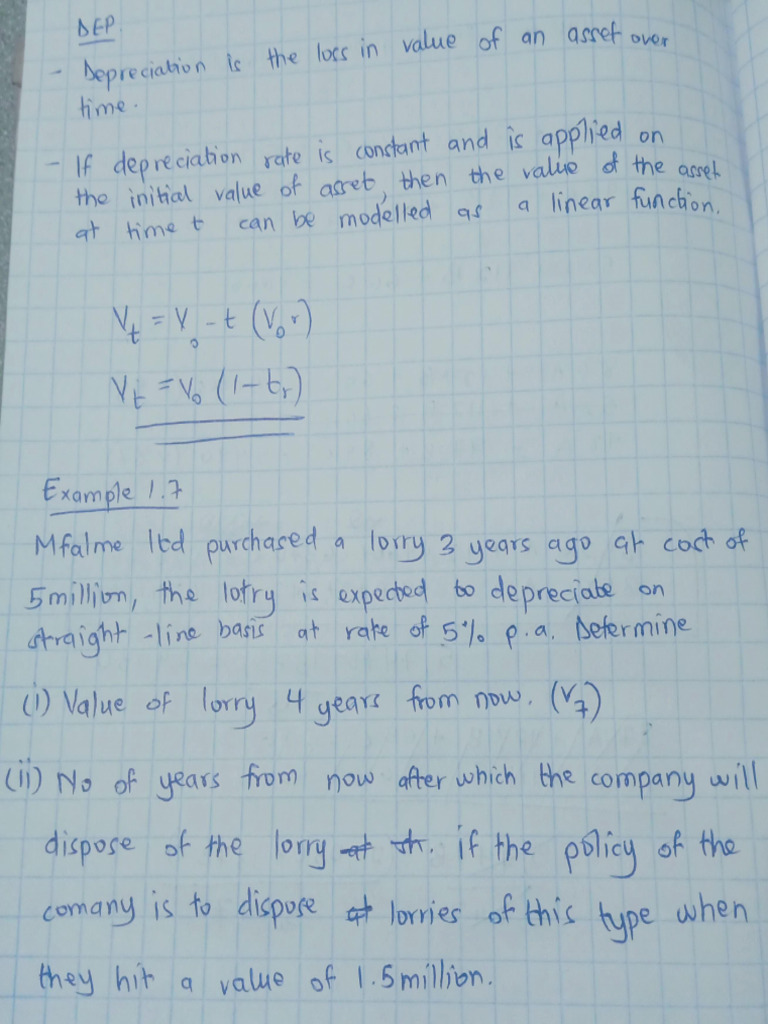 DEP
- Depreciation is the loss in value of an asset over
time.
- If depreciation rate is constant and is applied on
the initial value of asset, then the value of the asset
at time t can be modelled as a linear function.
V_t = V_0 - t (V_0 r)
V_t = V_0 (1 - tr)
Example 1.7
Mfalme ltd purchased a lorry 3 years ago at cost of
5million, the lorry is expected to depreciate on
straight-line basis at rate of 5% p.a. Determine
(i) Value of lorry 4 years from now. (V_7)
(ii) No of years from now after which the company will
dispose of the lorry if the policy of the
comany is to dispose lorries of this type when
they hit a value of 1.5million.